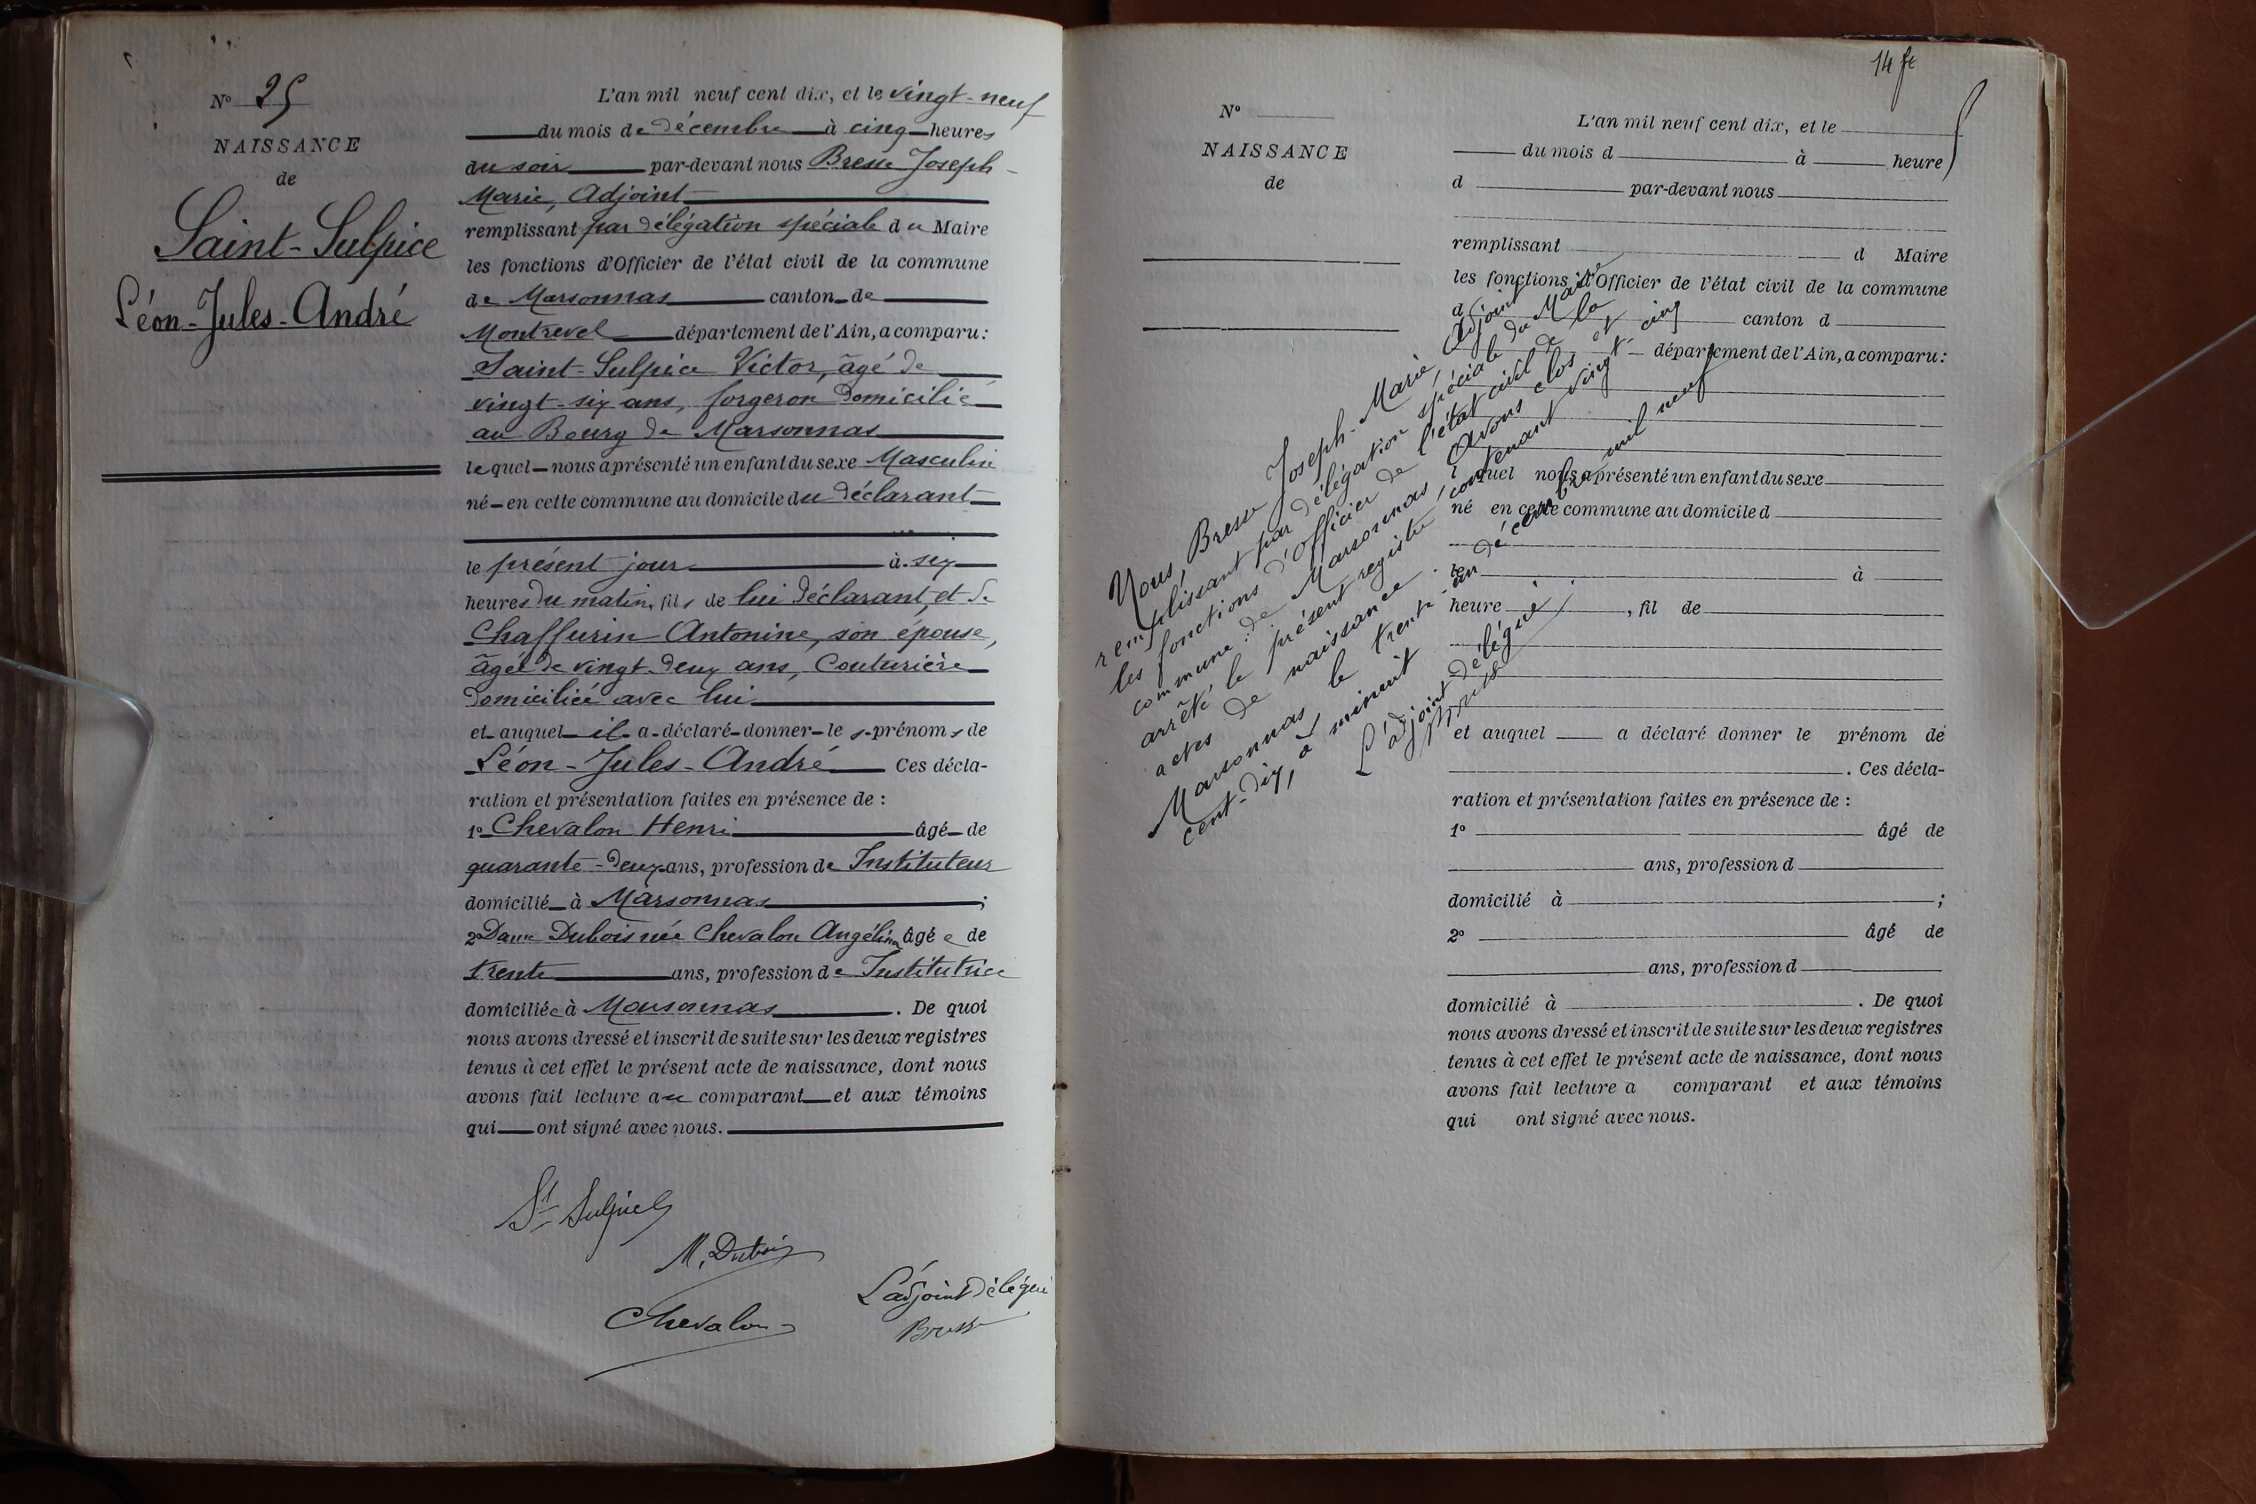 N° 25
NAISSANCE
de
Saint-Sulpice
Léon-Jules-André
L'an mil neuf cent dix, et le vingt-neuf
du mois de décembre à cinq heures
du soir par-devant nous Bresse Joseph-
Marie, Adjoint
remplissant par délégation spéciale du Maire
les fonctions d'Officier de l'état civil de la commune
de Marsonnas canton de
Montrevel département de l'Ain, a comparu:
Saint-Sulpice Victor, âgé de
vingt-six ans, forgeron domicilié
au Bourg de Marsonnas
lequel nous a présenté un enfant du sexe Masculin
né en cette commune au domicile du déclarant
le présent jour à six
heures du matin, fils de lui déclarant, et de
Chaffurin Antonine, son épouse,
âgée de vingt-deux ans, Couturière
domiciliée avec lui
et auquel il a déclaré donner les prénoms de
Léon-Jules-André Ces décla-
ration et présentation faites en présence de :
1° Chevalon Henri âgé de
quarante-deux ans, profession de Instituteur
domicilié à Marsonnas ;
2° Dame Dubois née Chevalon Angélina âgée de
trente ans, profession de Institutrice
domiciliée à Marsonnas. De quoi
nous avons dressé et inscrit de suite sur les deux registres
tenus à cet effet le présent acte de naissance, dont nous
avons fait lecture au comparant et aux témoins
qui ont signé avec nous.
St Sulpice
M. Dubois
Chevalon
L'adjoint délégué
Bresse
14 fe
N°
NAISSANCE
de
L'an mil neuf cent dix, et le
du mois d à heure
d par-devant nous
remplissant d Maire
les fonctions d'Officier de l'état civil de la commune
d canton d
département de l'Ain, a comparu:
l quel nous a présenté un enfant du sexe
né en cette commune au domicile d
le à
heure , fil de
et auquel a déclaré donner le prénom de
. Ces décla-
ration et présentation faites en présence de :
1° âgé de
ans, profession d
domicilié à ;
2° âgé de
ans, profession d
domicilié à . De quoi
nous avons dressé et inscrit de suite sur les deux registres
tenus à cet effet le présent acte de naissance, dont nous
avons fait lecture a comparant et aux témoins
qui ont signé avec nous.
Nous, Bresse Joseph-Marie, Adjoint
remplissant par délégation spéciale du Maire
les fonctions d'Officier de l'état civil de la
commune de Marsonnas, Avons clos et
arrêté le présent registre, contenant vingt-cinq
actes de naissance.
Marsonnas le trente-un décembre mil neuf
cent-dix, à minuit
L'adjoint délégué
Bresse